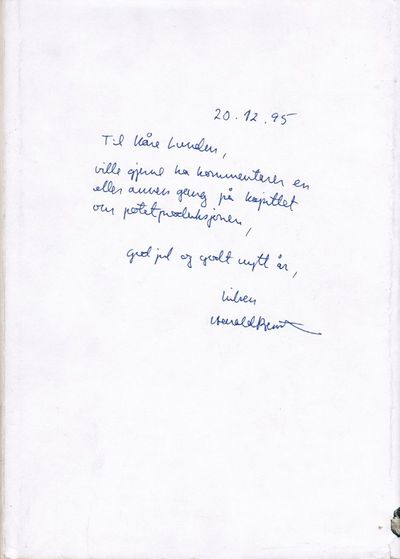 20.12.95
Til Kåre Lunden,
ville gjerne ha kommentarer en
eller annen gang på kapitlet
om potetproduksjonen,
god jul og godt nytt år,
hilsen
Harald